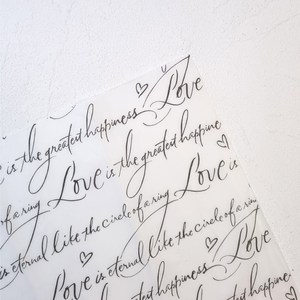 is the greatest happiness Love
Love is the greatest happine
of a ring Love is
is eternal like the circle of a ring
Love is eternal like the circle of a ring
Love is
Love is the greatest happiness